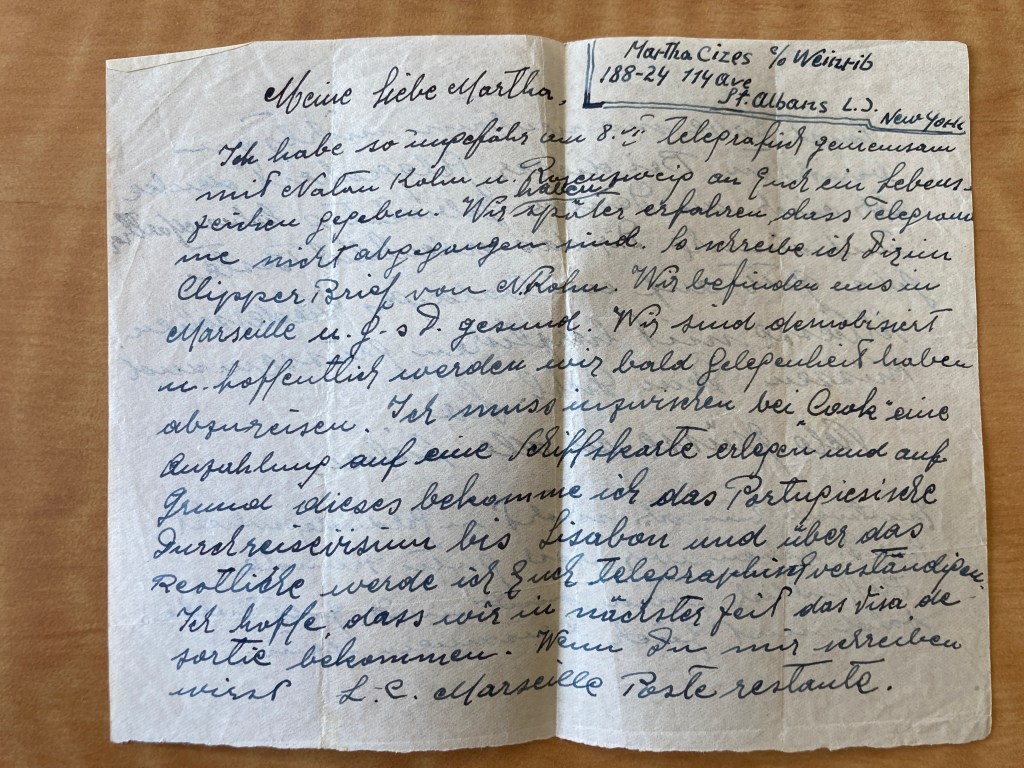 Martha Cizes c/o Weinrib
188-24 114 Ave
St. Albans L.I.
New York
Meine liebe Martha,
Ich habe so ungefähr am 8. VII telegrafisch gemeinsam
mit Natan Kohn u. an Euch ein Lebens-
zeichen gegeben. Wir haben später erfahren, dass Telegram-
me nicht abgegangen sind. So schreibe ich Dir im
Clipper Brief von N. Kohn. Wir befinden uns in
Marseille u. G. s D. gesund. Wir sind demobisiert
u. hoffentlich werden wir bald gelegenheit haben
abzureisen. Ich muss inzwischen bei "Cook" eine
Anzahlung auf eine Schiffskarte erlegen und auf
Grund dieses bekomme ich das Portugiesische
Durchreisevisum bis Lisabon und über das
Restliche werde ich Euch telegraphisch verständigen.
Ich hoffe, dass wir in nächster Zeit das Visa de
sortie bekommen. Wenn Du mir schreiben
wirst L. C. Marseille Poste restante.